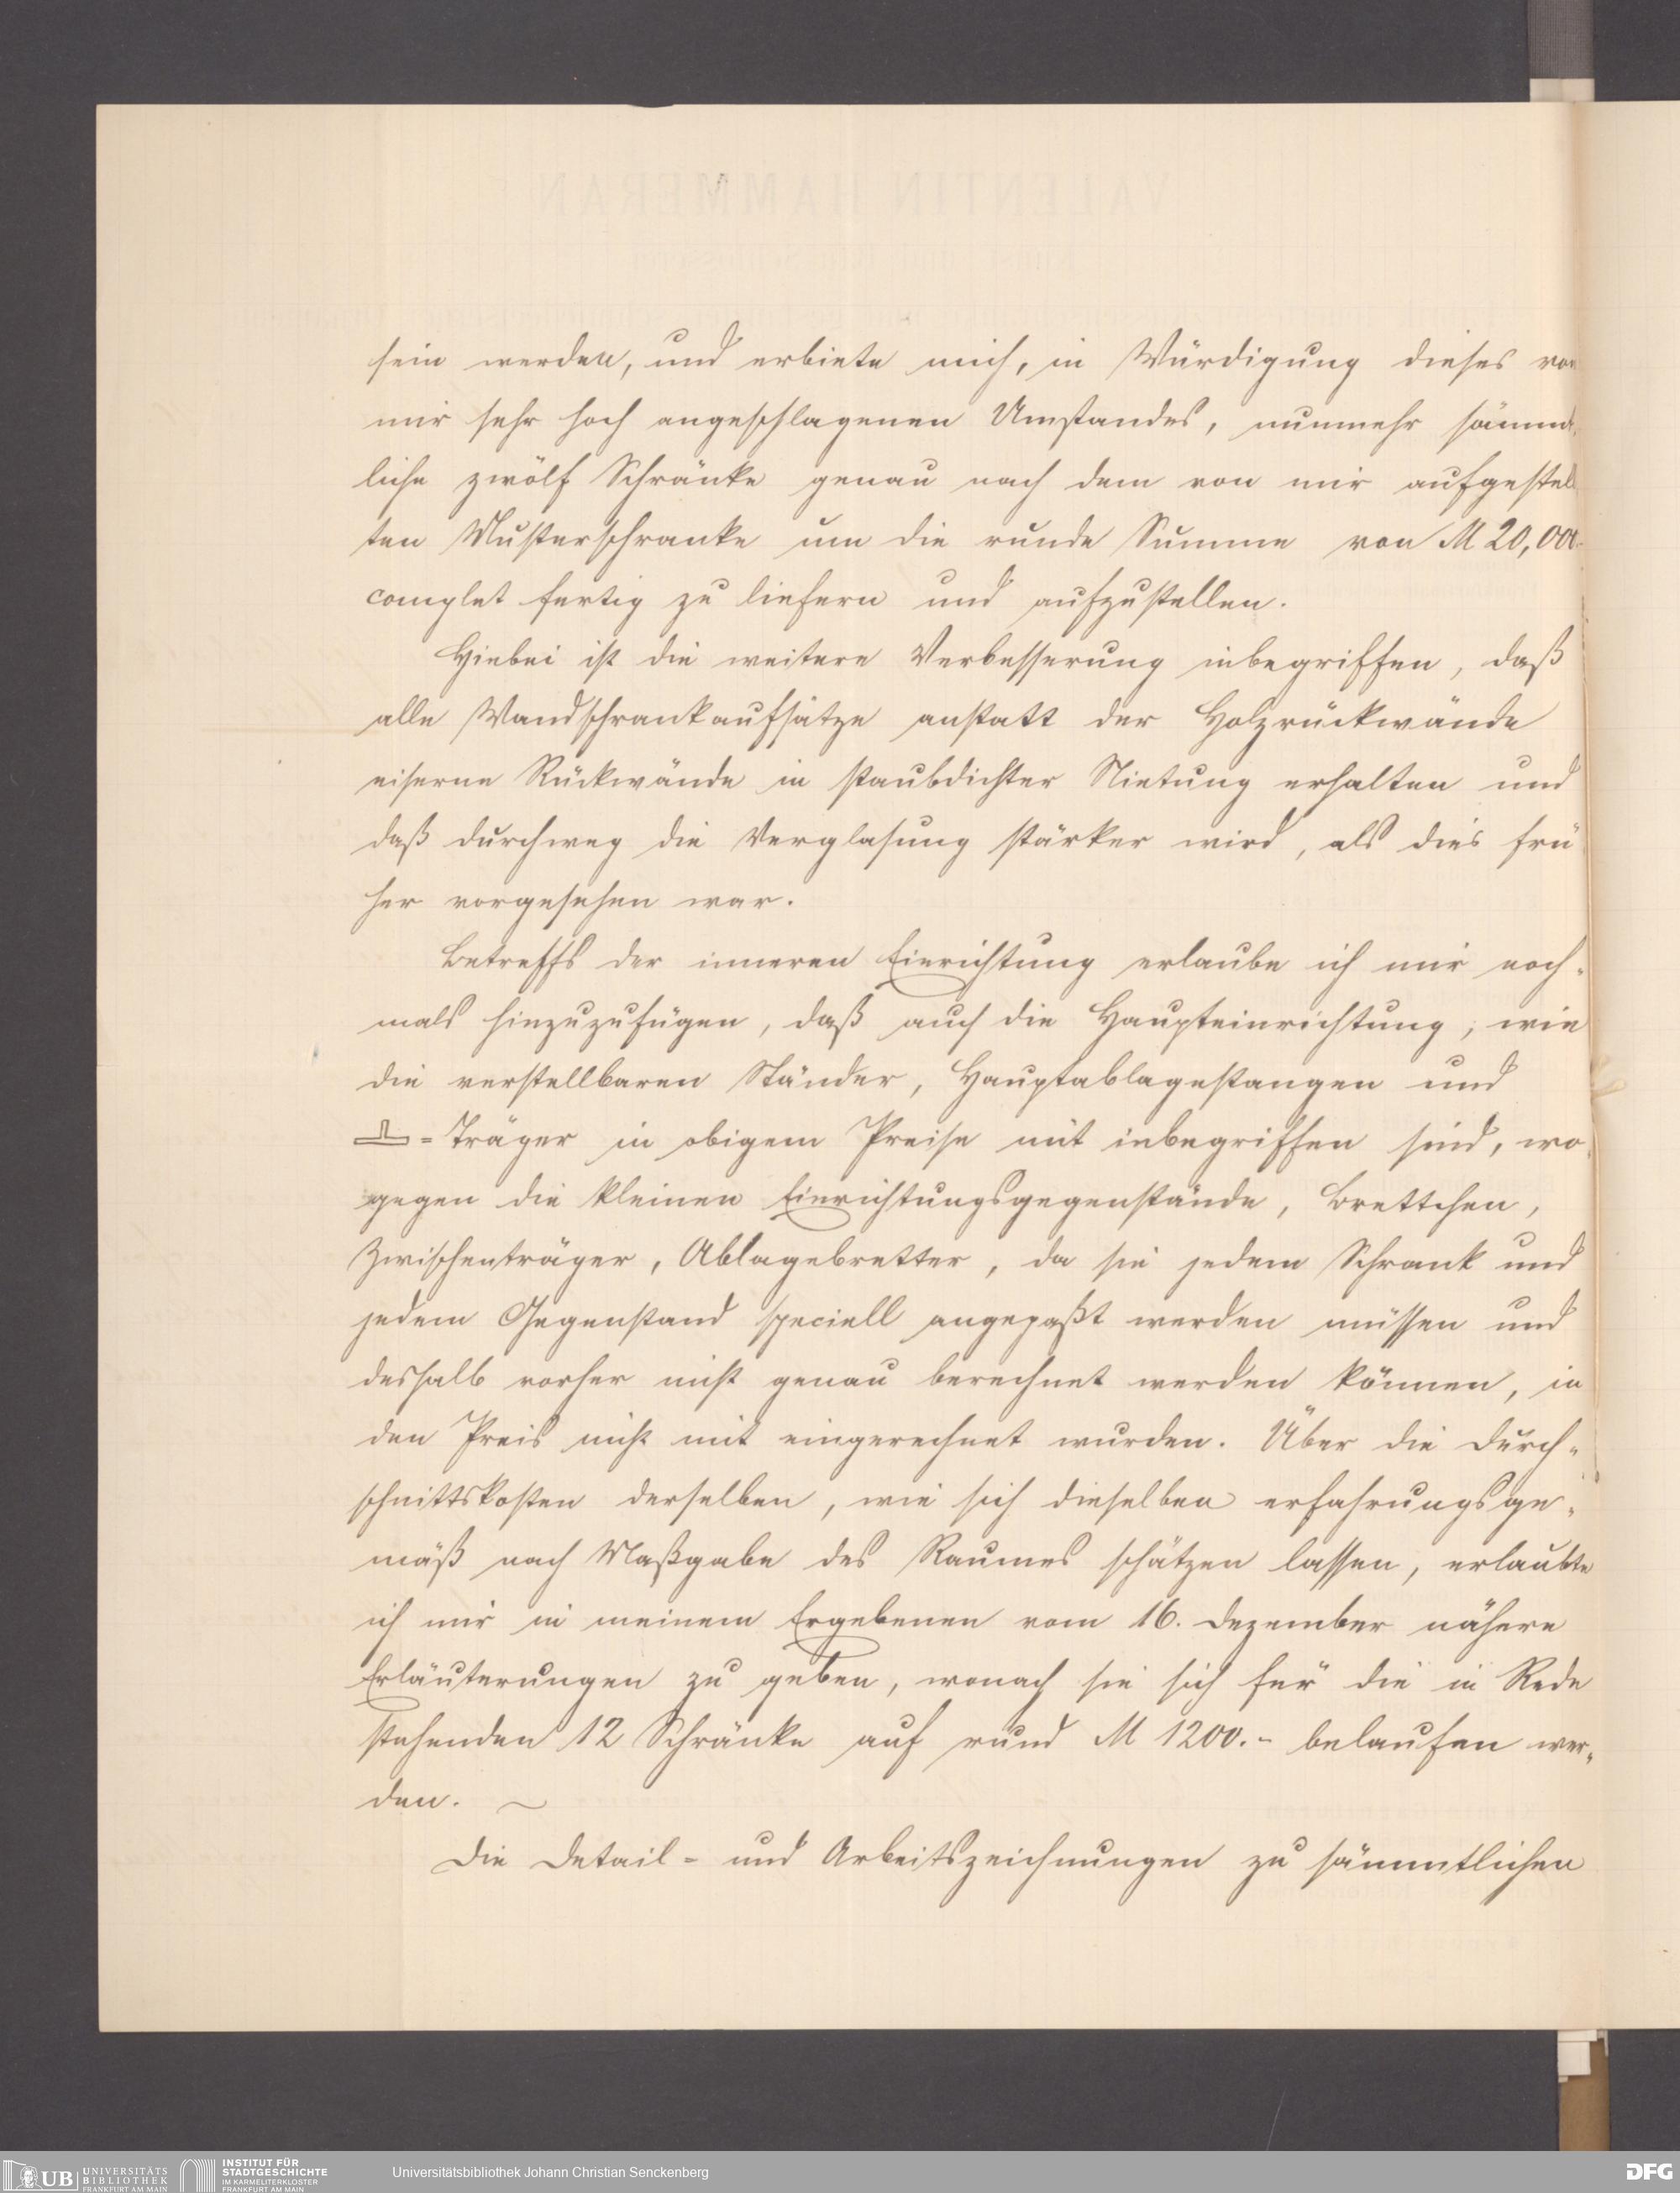 sein werden, und erbiete mich, in Würdigung dieses von
mir sehr hoch angeschlagenen Umstandes, nunmehr sämmt-
liche zwölf Schränke genau nach dem von mir aufgestell
ten Musterschranke um die runde Summe von M 20,000.
complet fertig zu liefern und aufzustellen.
Hiebei ist die weitere Verbesserung inbegriffen, daß
alle Wandschrankaufsätze anstatt der Holzrückwände
eiserne Rückwände in staubdichter Nietung erhalten und
daß durchweg die Verglasung stärker wird, als dies frü
her vorgesehen war.
Betreffs der inneren Einrichtung erlaube ich mir noch-
mals hinzuzufügen, daß auch die Haupteinrichtung, wie
die verstellbaren Ständer, Hauptablagestangen und
⊥=Träger in obigem Preise mit inbegriffen sind, wo
gegen die kleinen Einrichtungsgegenstände, Brettchen,
Zwischenträger, Ablagebretter, da sie jedem Schrank und
jedem Gegenstand speciell angepaßt werden müssen und
deshalb vorher nicht genau berechnet werden können, in
den Preis nicht mit eingerechnet wurden. Über die Durch-
schnittskosten derselben, wie sich dieselben erfahrungsge-
mäß nach Maßgabe des Raumes schätzen lassen, erlaubte
ich mir in meinem Ergebenen vom 16. Dezember nähere
Erläuterungen zu geben, wonach sie sich für die in Rede
stehenden 12 Schränke auf rund M 1200.- belaufen wer-
den. ~
Die Detail- und Arbeitszeichnungen zu sämmtlichen
UB UNIVERSITÄTS
BIBLIOTHEK
FRANKFURT AM MAIN
INSTITUT FÜR
STADTGESCHICHTE
IM KARMELITERKLOSTER
FRANKFURT AM MAIN
Universitätsbibliothek Johann Christian Senckenberg
DFG